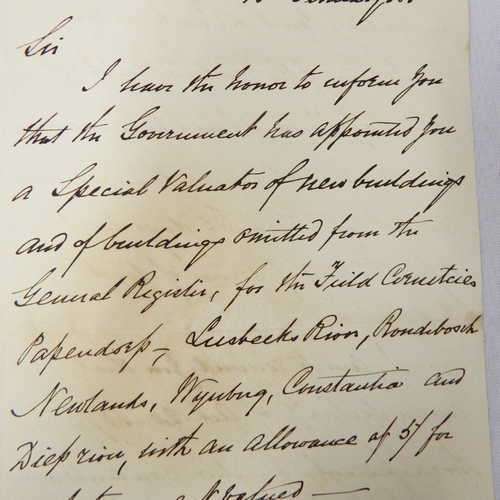 Sir
I have the honor to inform You
that the Government has appointed You
a Special Valuator of new buildings
and of buildings omitted from the
General Register, for the Field Cornetcies
Papendorp, Liesbecks River, Rondebosch
Newlands, Wynberg, Constantia and
Dieprivier, with an allowance of 5/ for
valued —